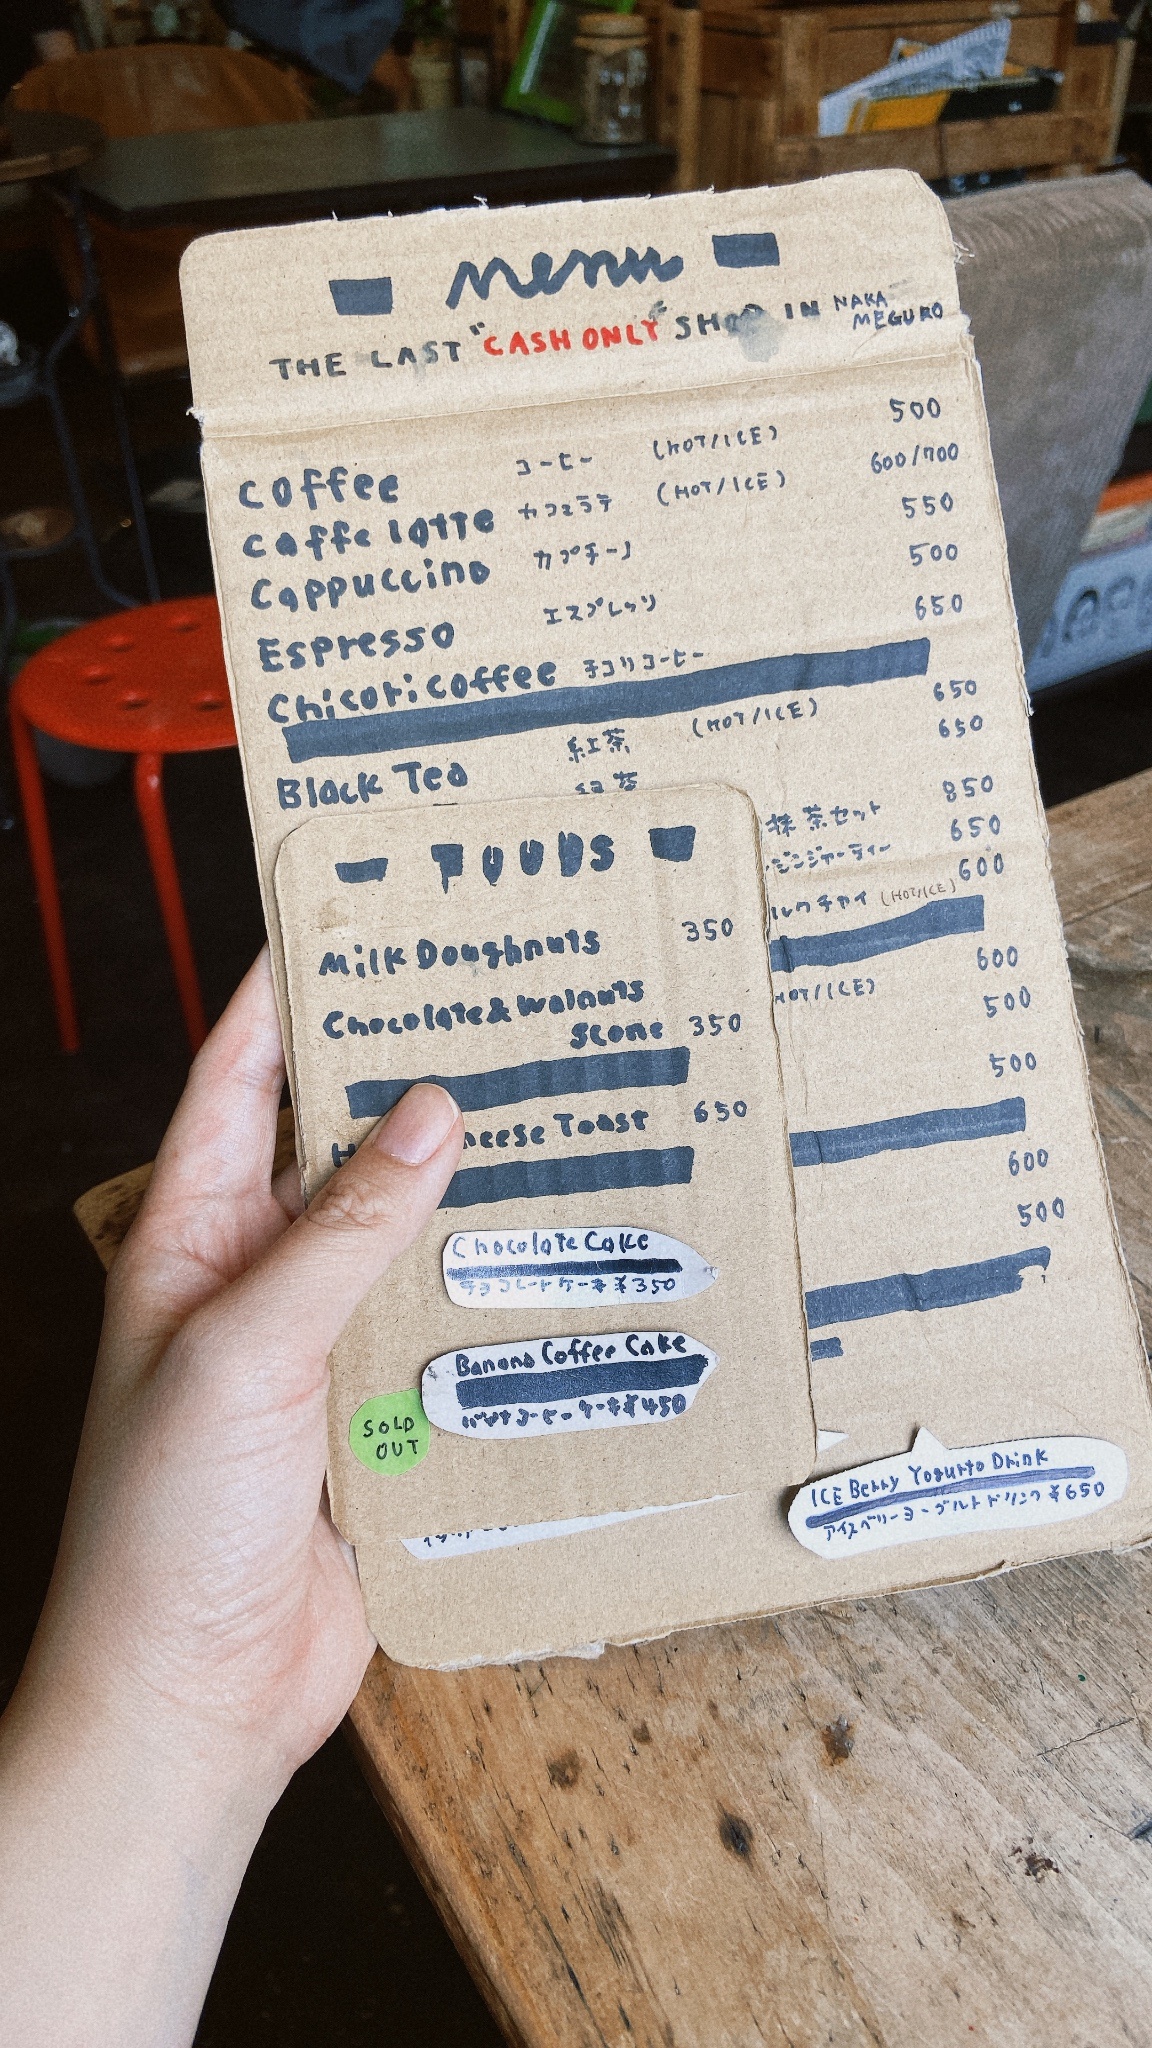 menu
THE LAST "CASH ONLY" SHOP IN NAKA MEGURO
Coffee コーヒー (HOT/ICE) 500
Caffe latte カフェラテ (HOT/ICE) 600/700
Cappuccino カプチーノ 550
Espresso エスプレッソ 500
Chicori coffee チコリコーヒー 650
Black Tea 紅茶 (HOT/ICE) 650
緑茶 650
抹茶セット 850
ジンジャーティー 650
ルクチャイ (HOT/ICE) 600
HOT/ICE) 600
500
500
600
500
ICE Berry Yogurto Drink
アイスベリーヨーグルトドリンク ¥650
FOODS
Milk Doughnuts 350
Chocolate & Walnuts
Scone 350
H heese Toast 650
Chocolate Cake
チョコレートケーキ ¥350
Banana Coffee Cake
バナナコーヒーケーキ ¥450
SOLD
OUT